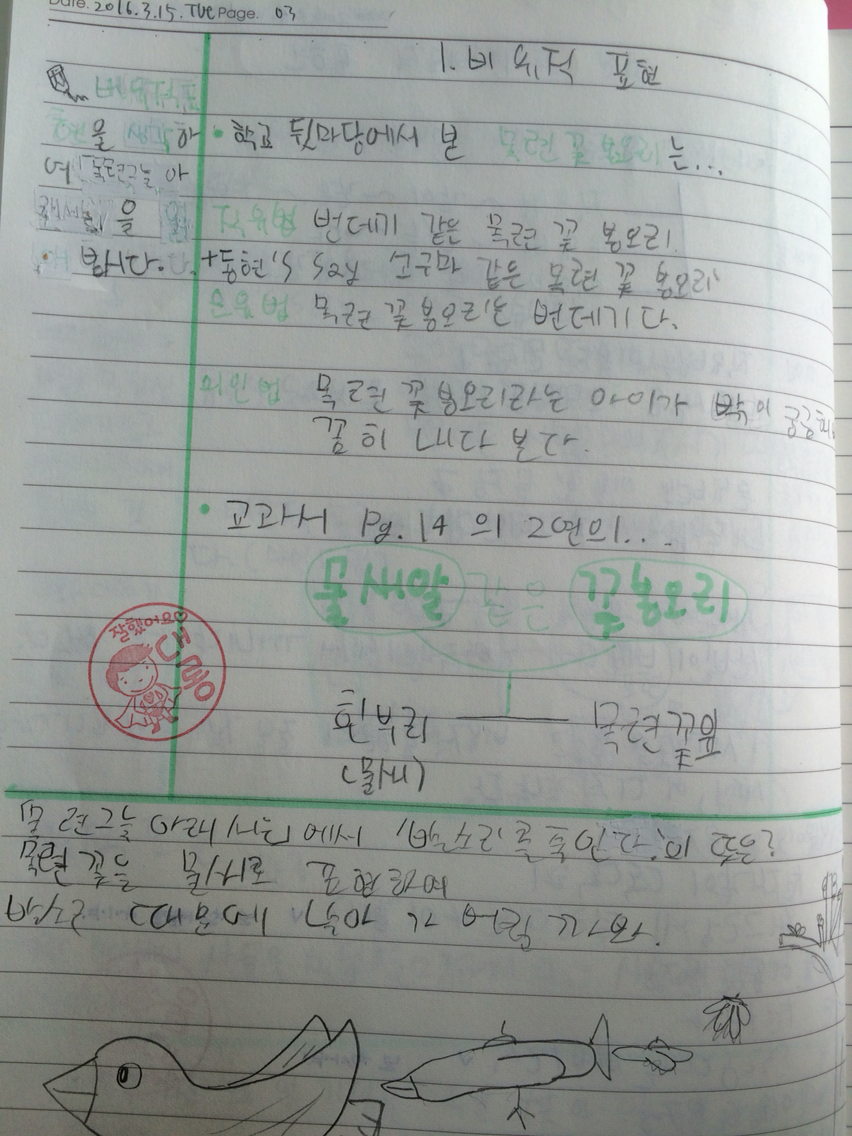 Date. 2016.3.15.TUE Page. 03
1. 비유적 표현
비유적 표
현을 생각하
여 「목련그늘 아
래서」을 읽
어 봅시다.
• 학교 뒷마당에서 본 목련 꽃 봉오리는...
직유법 번데기 같은 목련 꽃 봉오리
+동현's say 고구마 같은 목련 꽃 봉오리
은유법 목련 꽃 봉오리는 번데기다.
의인법 목련 꽃 봉오리라는 아이가 밖이 궁금해서
꼼히 내다 본다.
• 교과서 Pg.14 의 2연의...
물새알 같은 꽃봉오리
흰부리 목련꽃잎
(물새)
잘했어요♡
목련그늘 아래서는 에서 '발소리를 죽인다.'의 뜻은?
목련 꽃을 물새로 표현하여
발소리 때문에 날아 가 버릴 까봐.